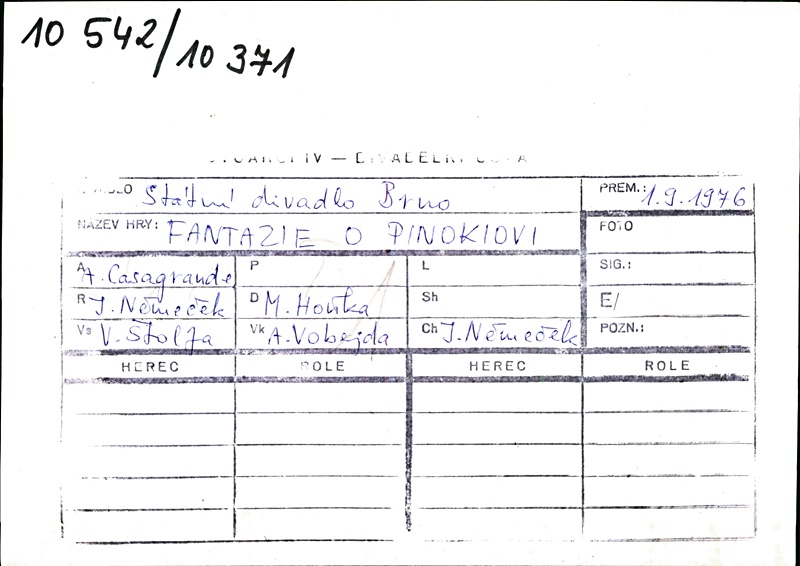 10 542/10 371
— DIVADELNÍ
Státní divadlo Brno PREM.: 1.9.1976
NÁZEV HRY: FANTAZIE O PINOKIOVI FOTO
A A. Casagrande P L SIG.:
R J. Němeček D M. Houka Sh E/
Vs V. Štolfa Vk A. Vobejda Ch J. Němeček POZN.:
HEREC ROLE HEREC ROLE